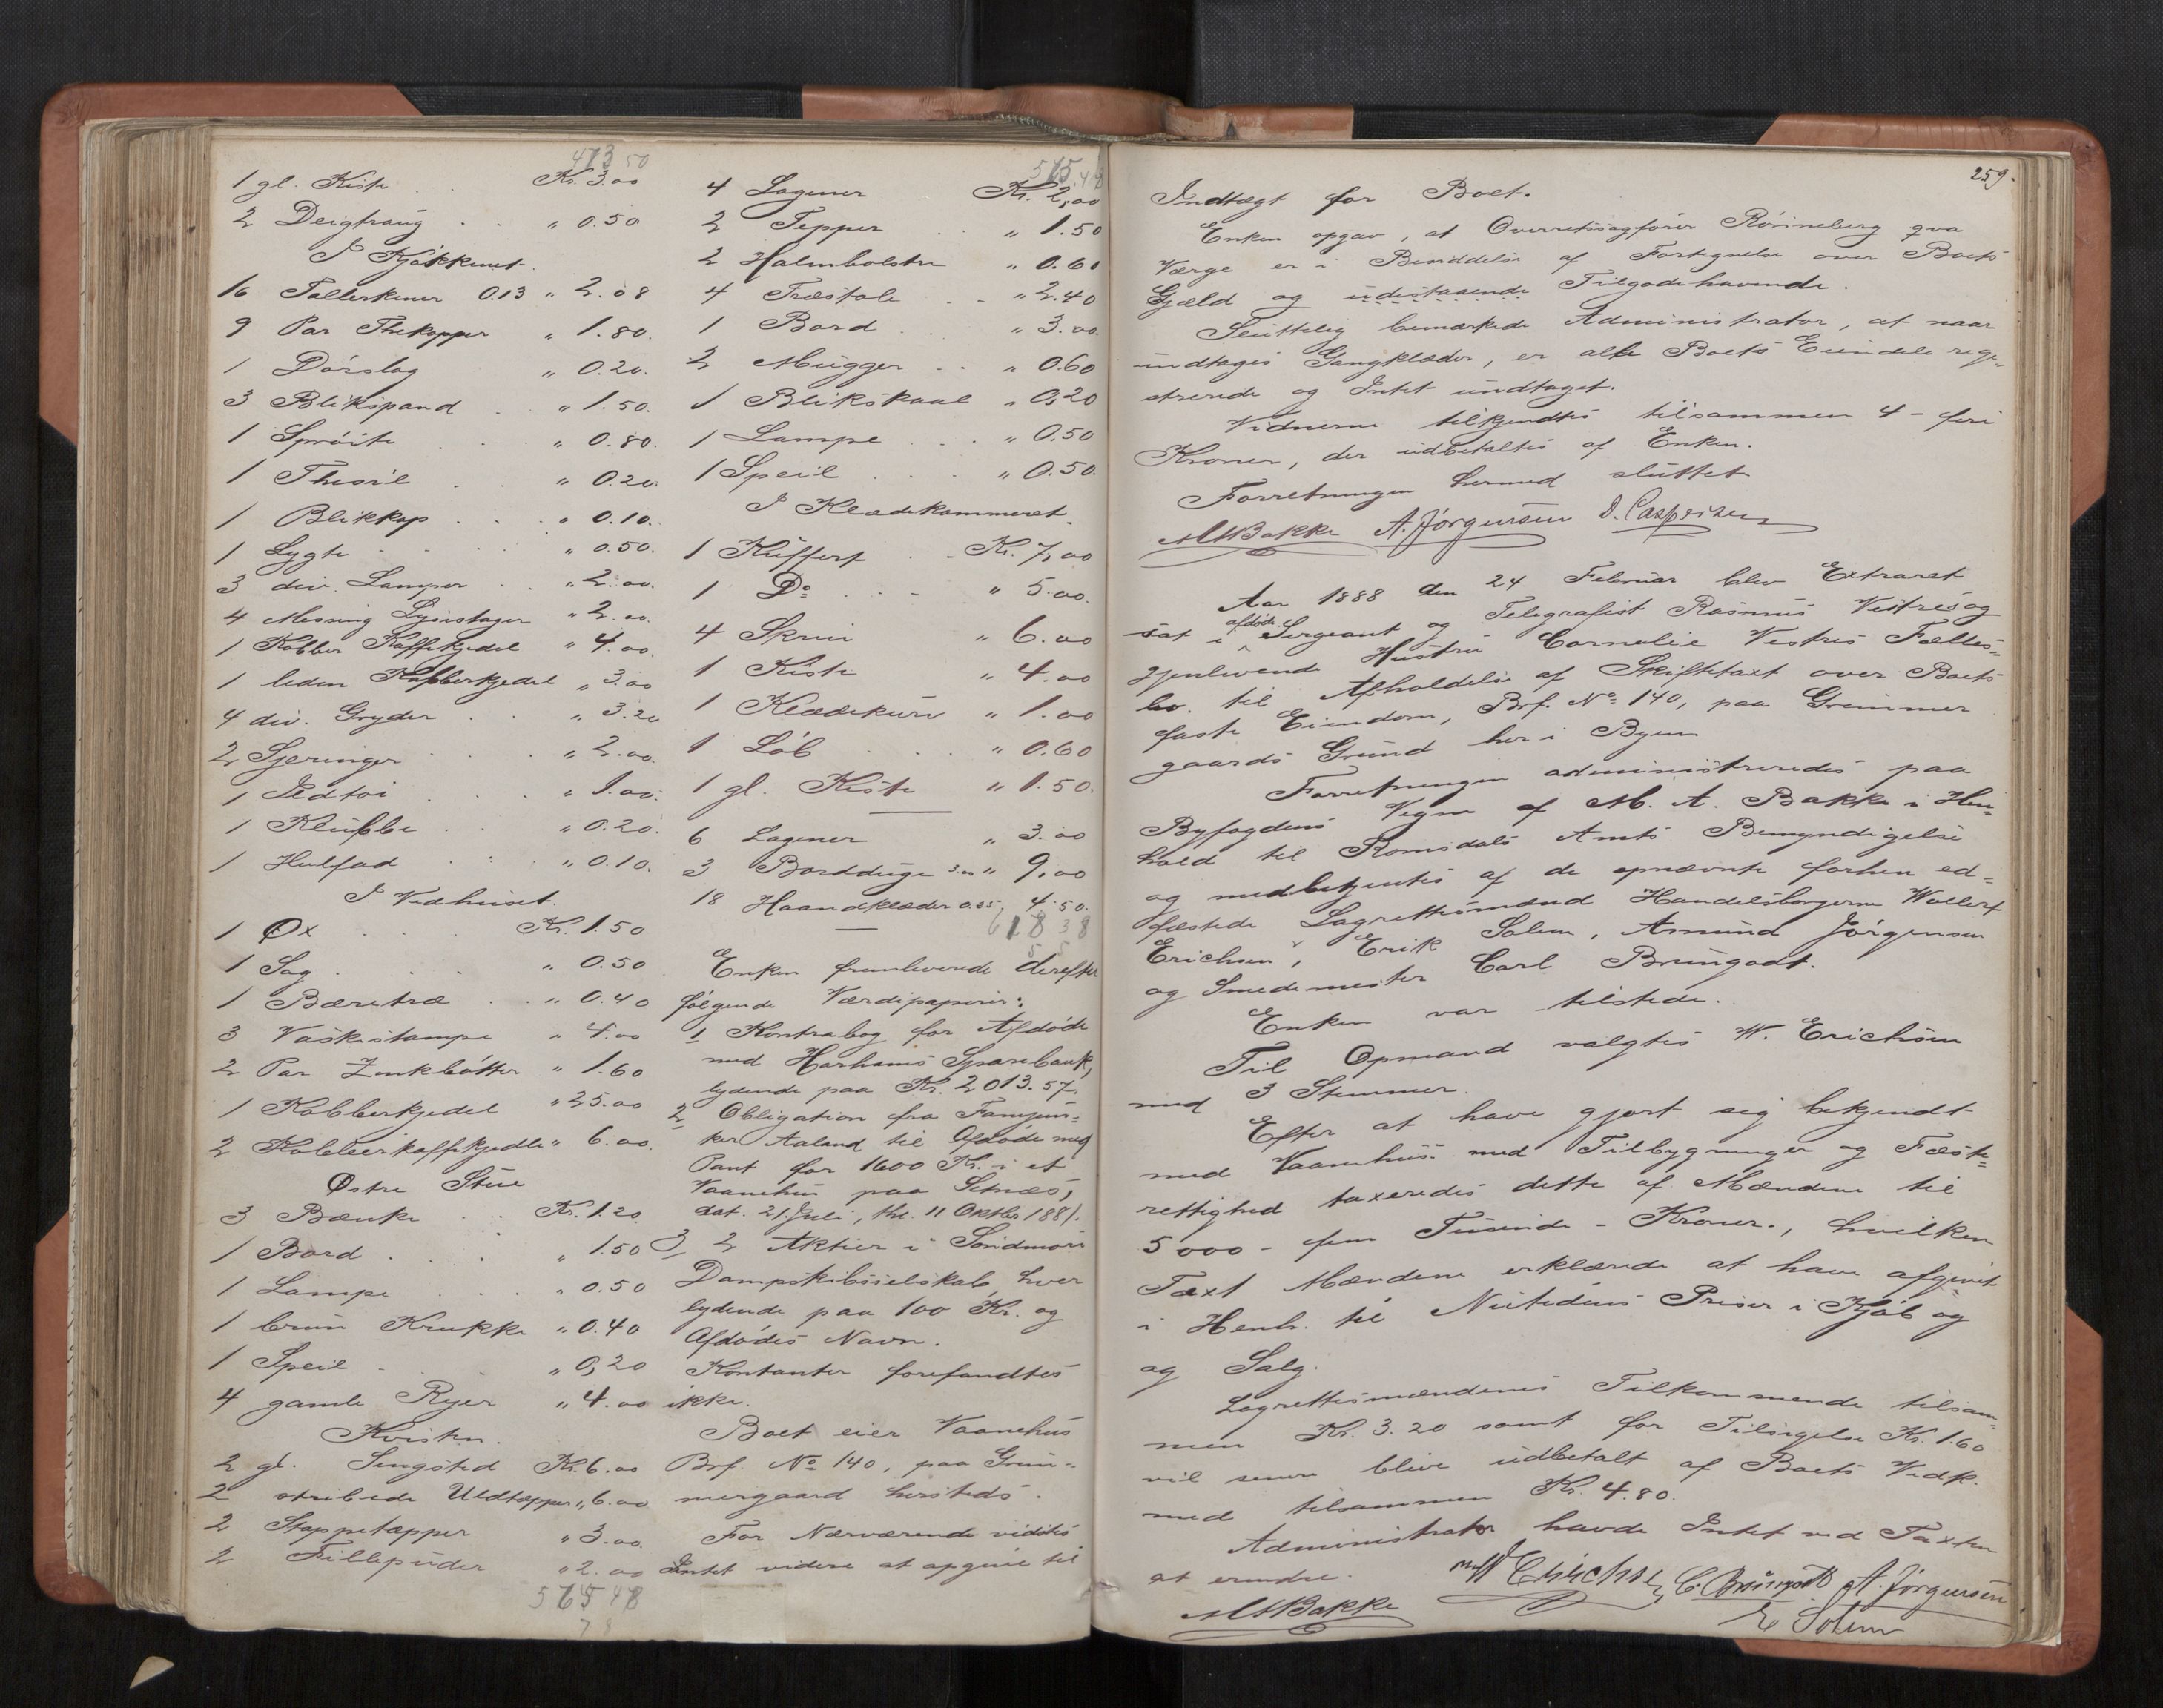 473 50
1 gl. Kiste . . Kr. 3.00
2 Deigtraug . . " 0.50
I Kjøkkenet.
16 Tallerkener 0.13 " 2.08
9 Par Thekopper " 1.80.
1 Dørslag " 0.20.
3 Blikspand . " 1.50.
1 Sprøite . . " 0.80.
1 Thesil . . " 0.20.
1 Blikkop . . . " 0.10.
1 Lygte . . . . " 0.50.
3 div. Lamper . . " 2.00.
4 Mesning Lysestager " 2.00.
1 Kobber Kaffekjedel " 4.00.
1 liden Kobberkjedel " 3.00
4 div. Gryder . . " 3.20
2 . . . " 2.00.
1 Ildtøi . . . " 1.00.
1 Klubbe . . " 0.20.
1 Hulfad . . . " 0.10.
I Vedhuset.
1 Øx . . . Kr. 1.50
1 Sag . . . " 0.50
1 Bæretræ . . " 0.40
3 Vaskestampe " 4.00
2 Par Zinkbøtter " 1.60
1 Kobberkjedel " 25.00
2 Kobberkaffekjedle " 6.00.
Østre Stue
3 Bænke . . Kr. 1.20.
1 Bord . . . " 1.50
1 Lampe . . . " 0.50
1 brun Krukke " 0.40
1 Speil . . . " 0,20
4 gamle Ryer " 4.00
Kvisten.
2 gl. Sengsted Kr. 6.00
2 stribede Uldtæpper " 6.00
2 Stoppetæpper " 3.00.
2 Fillepuder " 2.00
565 48
4 Lagener Kr. 2,00
2 Tepper . . " 1.50
2 Halmbolstre " 0.60
4 Træstole . . " 2.40
1 Bord . . " 3.00.
2 Mugger . . " 0.60
1 Blikskaal " 0,20
1 Lampe . . . " 0.50
1 Speil . . . " 0.50.
I Klædekammeret.
1 Kuffert . . Kr. 7,00
1 Do . . . " 5.00.
4 Skrin " 6.00
1 Kiste " 4.00
1 Klædekurv " 1.00
1 Løb . . . " 0.60
1 gl. Kiste " 1.50.
6 Lagener " 3.00
3 Bordduge 3.00 " 9,00
18 Haandklæder 0.25 " 4.50.
618 38
Enken fremleverede derefter
følgende Værdipapirer:
1 Kontrabog for Afdøde
med Harhams Sparebank,
lydende paa Kr. 2013.57.
2 Obligation fra Fanejun-
ker Aaland til Afdøde med
Pant for 1600 Kr. i et
Vaanehus paa Setnæs,
dat. 21. Juli, thl. 11 Oktbr 1881.
3, 2 Aktier i Søndmøre
Dampskibsselskab, hver
lydende paa 100 Kr. og
Afdødes Navn.
Kontanter forefandtes
ikke.
Boet eier Vaanehus
Brf. No 140, paa Grim-
mergaard hersteds.
For Nærværende vidstes
Intet videre at opgive til
259.
Indtægt for Boet.
Enken opgav, at Overretssagfører Rønneberg qva
Værge er i Besiddelse af Fortegnelse over Boets
Gjæld og udestaaende Tilgodehavende.
Sluttelig bemærkede Administrator, at naar
undtages Gangklæder, er alle Boets Eiendele regi-
strerede og Intet undtaget.
Vidnerne tilkjendtes tilsammen 4 - fire
Kroner, der udbetaltes af Enken.
Forretningen hermed sluttet
MABakke A. Jørgensen D. Caspersen
Aar 1888 den 24 Februar blev Extraret
sat i afdøde Sergeant og Telegrafist Rasmus Vestres og
gjenlevende Hustru Cornelie Vestres Fælles-
bo. til Afholdelse af Skiftetaxt over Boets
faste Eiendom, Brf. No 140, paa Grimmer
gaards Grund her i Byen
Forretningen administreredes paa
Byfogdens Vegne af M. A. Bakke i Hen-
hold til Romsdals Amts Bemyndigelse
og medbetjentes af de opnævnte forhen ed-
fæstede Lagrettesmænd Handelsborgerne Wollert
Erichsen, Erik Solem, Asmund Jørgensen
og Smedemester Carl Brungodt.
Enken var tilstede.
Til Opmand valgtes W. Erichsen
med 3 Stemmer.
Efter at have gjort sig bekjendt
med Vaanehus med Tilbygninger og Fæste-
rettighed taxeredes dette af Mændene til
5000 - fem Tusinde - Kroner, hvilken
Taxt Mændene erklærede at have afgivet
i Henh. til Nutidens Priser i Kjøb og
og Salg.
Lagrettesmændenes Tilkommende tilsam-
men Kr. 3.20 samt for Tilsigelse Kr. 1.60
vil senere blive udbetalt af Boets Vedk.
med tilsammen Kr. 4.80.
Administrator havde Intet ved Taxten
at erindre.
MABakke W Erichsen C. Brungodt A. Jørgensen
E Solem